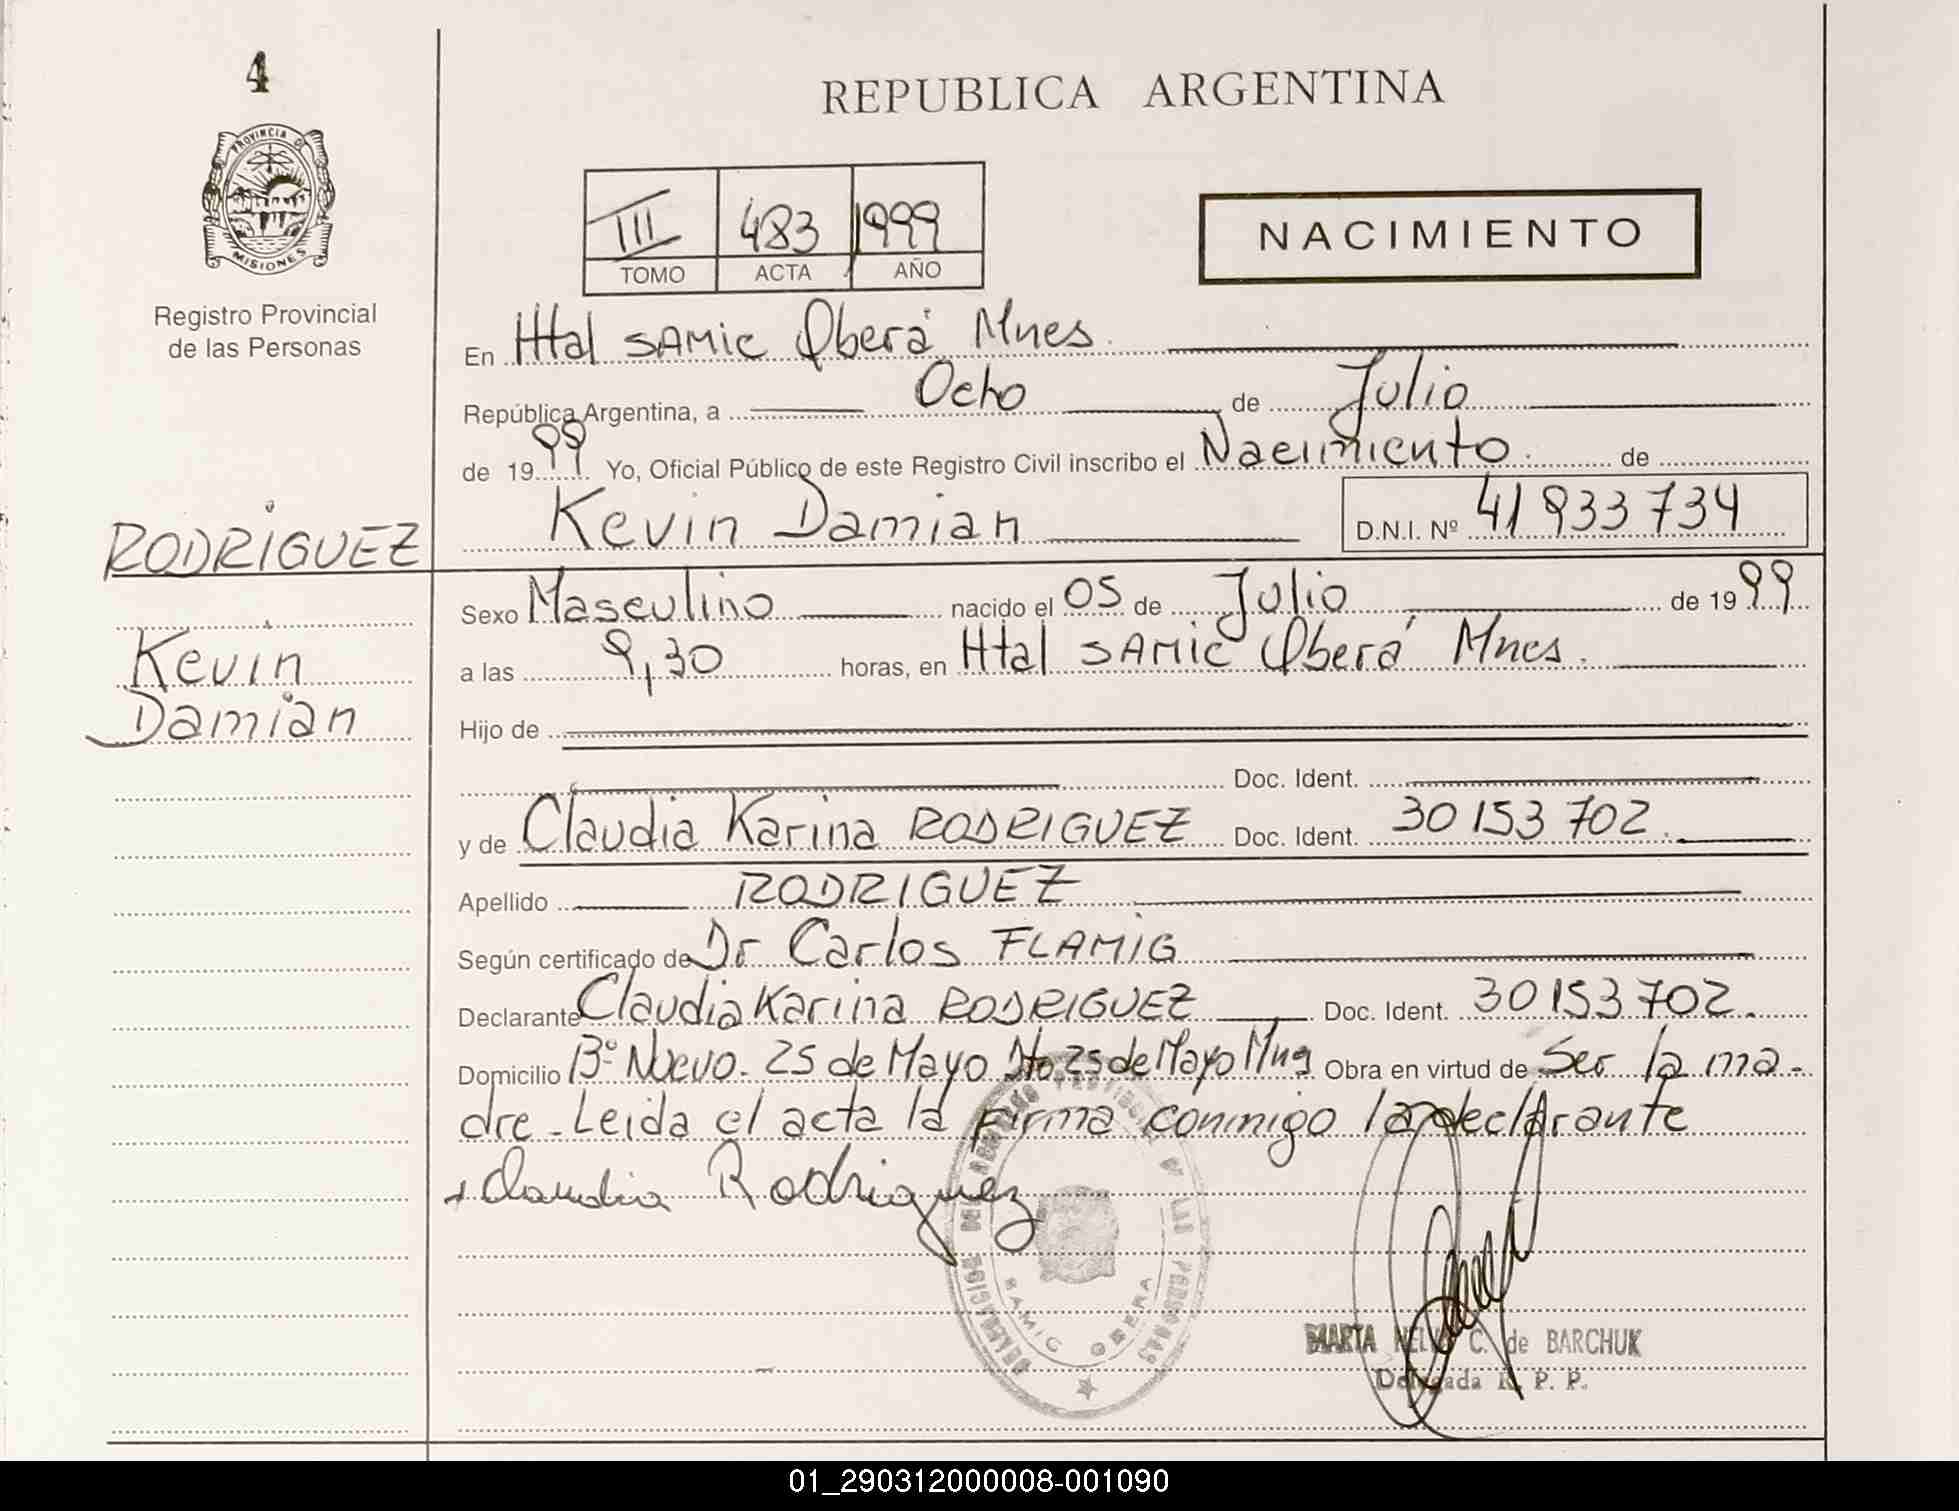 4
REPUBLICA ARGENTINA
PROVINCIA DE
MISIONES
Registro Provincial
de las Personas
III 483 1999
TOMO ACTA AÑO
NACIMIENTO
En Htal SAMIC Oberá Mnes.
República Argentina, a Ocho de Julio
de 1999 Yo, Oficial Público de este Registro Civil inscribo el Nacimiento de
Kevin Damian D.N.I. Nº 41 933 734
RODRIGUEZ
Kevin
Damian
Sexo Masculino nacido el 05 de Julio de 1999
a las 9,30 horas, en Htal SAMIC Oberá Mnes.
Hijo de
Doc. Ident.
y de Claudia Karina RODRIGUEZ Doc. Ident. 30 153 702
Apellido RODRIGUEZ
Según certificado de Dr Carlos FLAMIG
Declarante Claudia Karina RODRIGUEZ Doc. Ident. 30 153 702.
Domicilio Bº Nuevo. 25 de Mayo Dto 25 de Mayo Mns Obra en virtud de Ser la ma-
dre - Leida el acta la firma conmigo la declarante
Claudia Rodriguez
SAMIC OBERA
MARTA NELLY C. de BARCHUK
Delegada R. P. P.
01_290312000008-001090